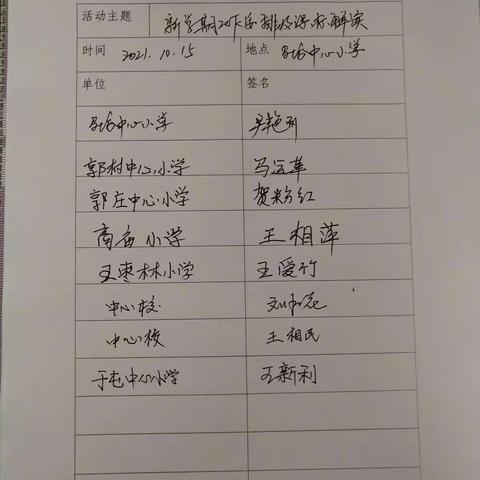 活动主题 新学期工作安排及课标解读
时间 2021.10.15 地点 中心小学
单位 签名
中心小学 吴艳
郭村中心小学 马运革
郭庄中心小学 贺粉红
商庙小学 王相萍
王枣林小学 王爱竹
中心校
中心校 王相民
于屯中心小学 王新利